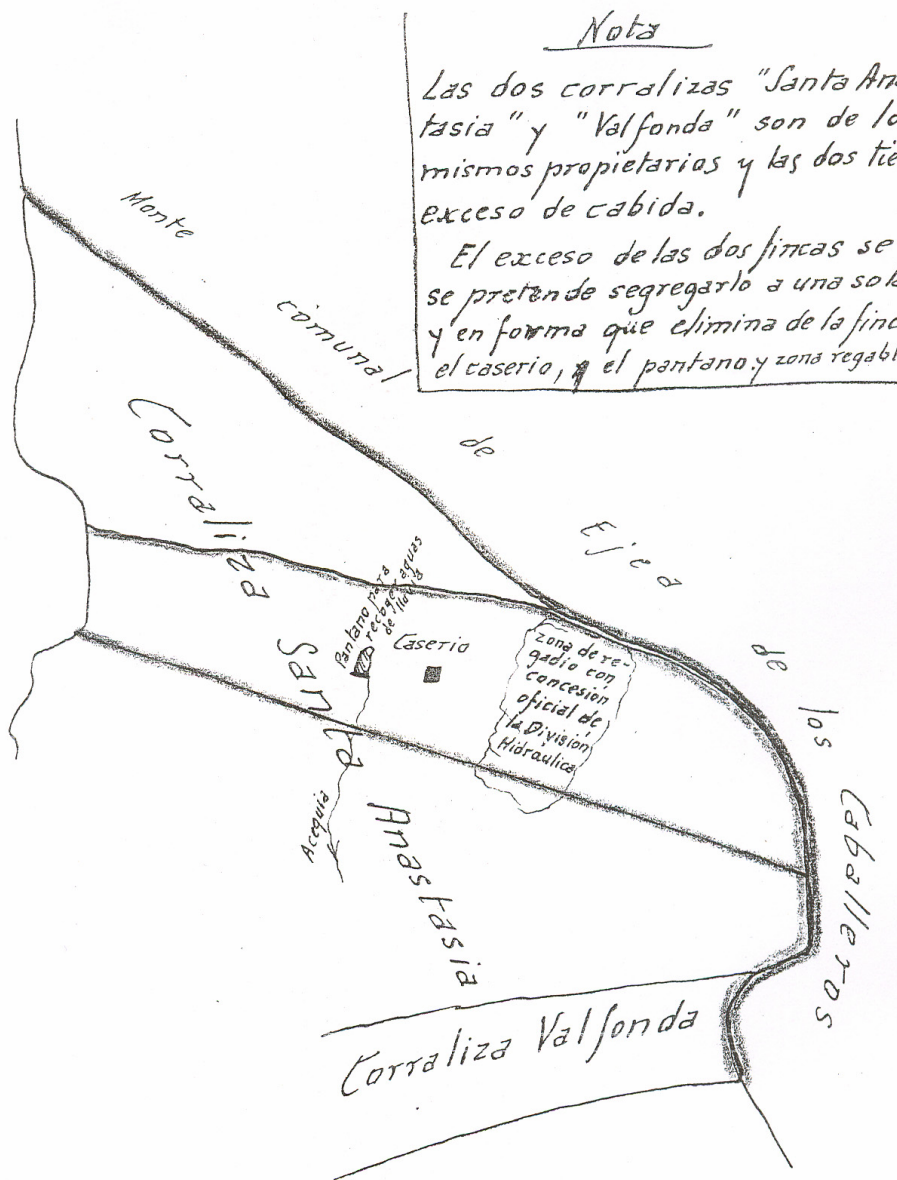 Nota
Las dos corralizas "Santa Ana
tasia" y "Valfonda" son de lo
mismos propietarios y las dos tie
exceso de cabida.
El exceso de las dos fincas se
se pretende segregarlo a una sola
y en forma que elimina de la finc
el caserio, el pantano y zona regabl
Monte comunal de Ejea de los Caballeros
Corraliza Santa Anastasia
Pantano para
recoger aguas
de lluvia
Caserio
zona de re-
gadio con
concesión
oficial de
la División
Hidráulica
Acequia
Corraliza Valfonda